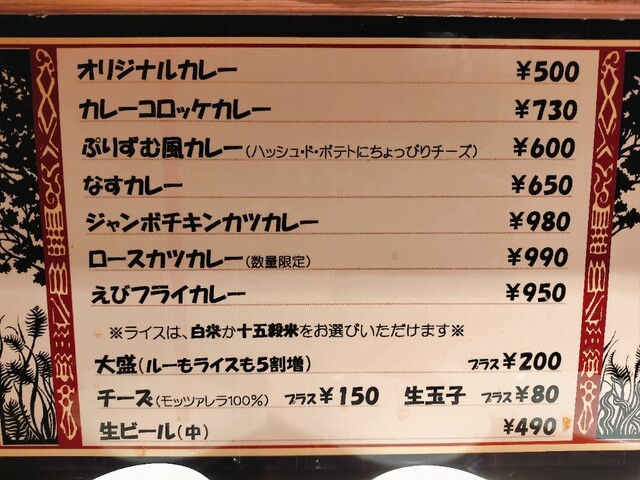 オリジナルカレー ¥500
カレーコロッケカレー ¥730
ぷりずむ風カレー(ハッシュ・ド・ポテトにちょっぴりチーズ) ¥600
なすカレー ¥650
ジャンボチキンカツカレー ¥980
ロースカツカレー(数量限定) ¥990
えびフライカレー ¥950
※ライスは、白米か十五穀米をお選びいただけます※
大盛(ルーもライスも5割増) プラス¥200
チーズ(モッツァレラ100%) プラス¥150 生玉子 プラス¥80
生ビール(中) ¥490